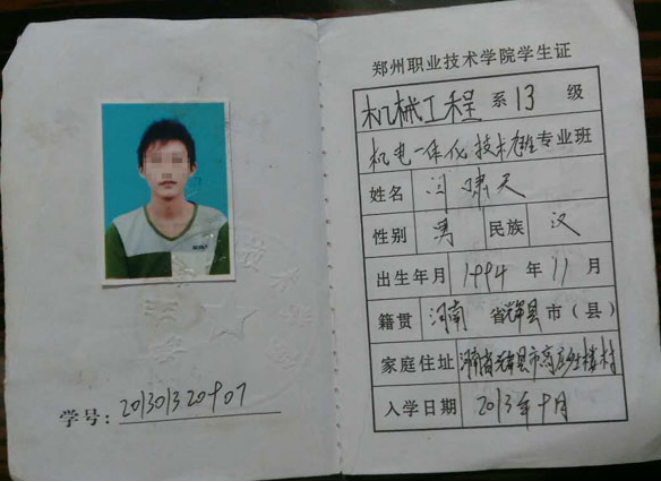 学号: 201301320907
郑州职业技术学院学生证
机械工程 系 13 级
机电一体化技术 专业班
姓名 闫啸天
性别 男 民族 汉
出生年月 1994 年 11 月
籍贯 河南 省 辉县 市（县）
家庭住址 河南省辉县市高庄乡 楼村
入学日期 2013年9月